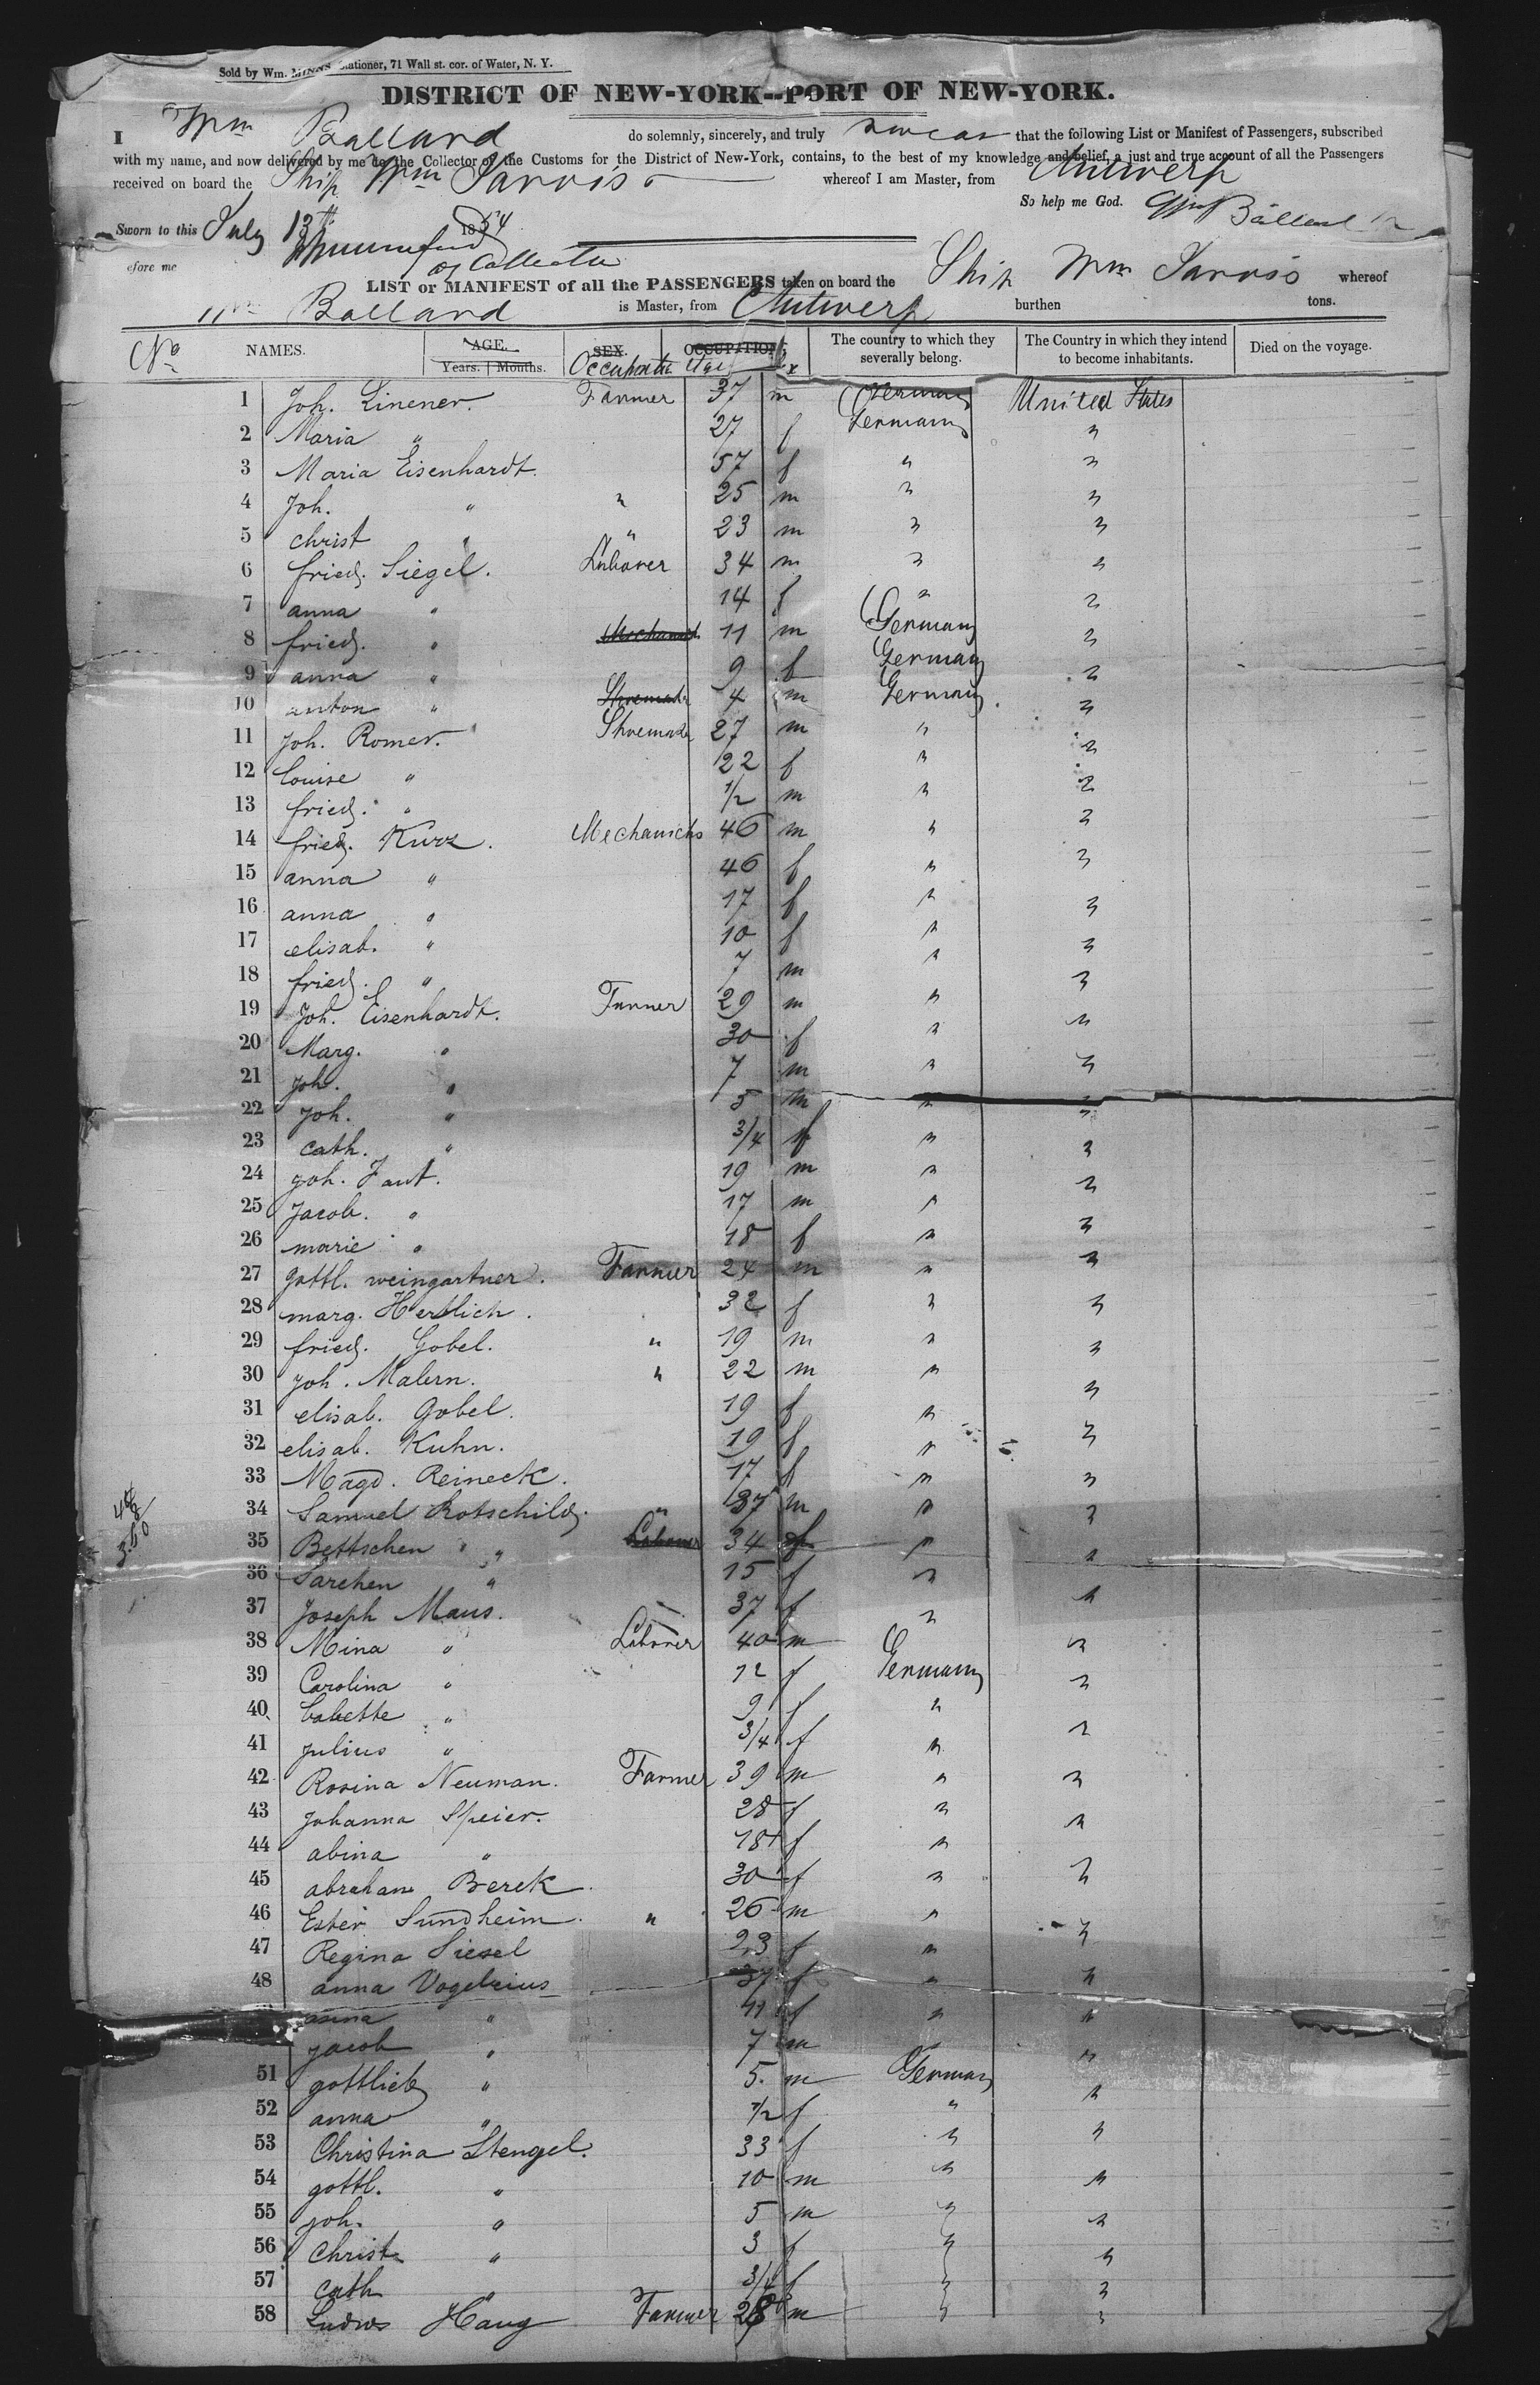 Sold by Wm. MINNS, Stationer, 71 Wall st. cor. of Water, N. Y.
DISTRICT OF NEW-YORK--PORT OF NEW-YORK.
I Wm Ballard do solemnly, sincerely, and truly swear that the following List or Manifest of Passengers, subscribed
with my name, and now delivered by me to the Collector of the Customs for the District of New-York, contains, to the best of my knowledge and belief, a just and true account of all the Passengers
received on board the Ship Wm Jarvis whereof I am Master, from Antwerp
So help me God. Wm Ballard
Sworn to this July 13th 1854
efore me
Collector
LIST or MANIFEST of all the PASSENGERS taken on board the Ship Wm Jarvis whereof
Wm Ballard is Master, from Antwerp burthen tons.
No NAMES. AGE. Years. Months. SEX. Occupation OCCUPATION Age Sex The country to which they severally belong. The Country in which they intend to become inhabitants. Died on the voyage.
1 Joh. Linener. Farmer 37 m Germany United States
2 Maria " 27 f Germany "
3 Maria Eisenhardt. 57 f " "
4 Joh. " " 25 m " "
5 christ " " 23 m " "
6 fried. Siegel. Laborer 34 m " "
7 anna " 14 f " "
8 fried. " Mechanick 11 m Germany "
9 anna " 9 f Germany "
10 anton " Shoemaker 4 m Germany "
11 Joh. Romer. Shoemaker 27 m " "
12 Louise " 22 f " "
13 fried. " 1/2 m " "
14 fried. Kurz. Mechanicks 46 m " "
15 anna " 46 f " "
16 anna " 17 f " "
17 elisab. " 10 f " "
18 fried. " 7 m " "
19 Joh. Eisenhardt. Farmer 29 m " "
20 Marg. " 30 f " "
21 Joh. " 7 m " "
22 Joh. " 5 m " "
23 cath. " 3/4 f " "
24 joh. Faut. 19 m " "
25 Jacob. " 17 m " "
26 marie " 18 f " "
27 gottl. weingartner. Farmer 24 m " "
28 marg. Hertlich. 32 f " "
29 fried. Gobel. " 19 m " "
30 joh. Malern. " 22 m " "
31 elisab. Gobel. 19 f " "
32 elisab. Kuhn. 19 f " "
33 Magd. Reineck. 17 f " "
34 Samuel Rotschild. " 37 m " "
35 Bettschen " Laborer 34 f " "
36 Sarchen " 15 f " "
37 Joseph Maus. 37 f " "
38 Mina " Laborer 40 m Germany "
39 Carolina " 12 f "
40 babette " 9 f " "
41 julius " 3/4 f " "
42 Rosina Neuman. Farmer 39 m " "
43 Johanna Speier. 28 f " "
44 abina " 18 f " "
45 abraham Berek. 30 f " "
46 Ester Sundheim. " 26 m " "
47 Regina Siesel 23 f " "
48 anna Vogeleius 37 f " "
anna " 11 f " "
jacob " 7 m "
51 gottlieb " 5. m Germany "
52 anna " 1/2 f " "
53 Christina Stengel. 33 f " "
54 gottl. " 10 m " "
55 joh. " 5 m " "
56 Christ " 3 f " "
57 cath " 3/4 f " "
58 Ludws Haug Farmer 28 m " "